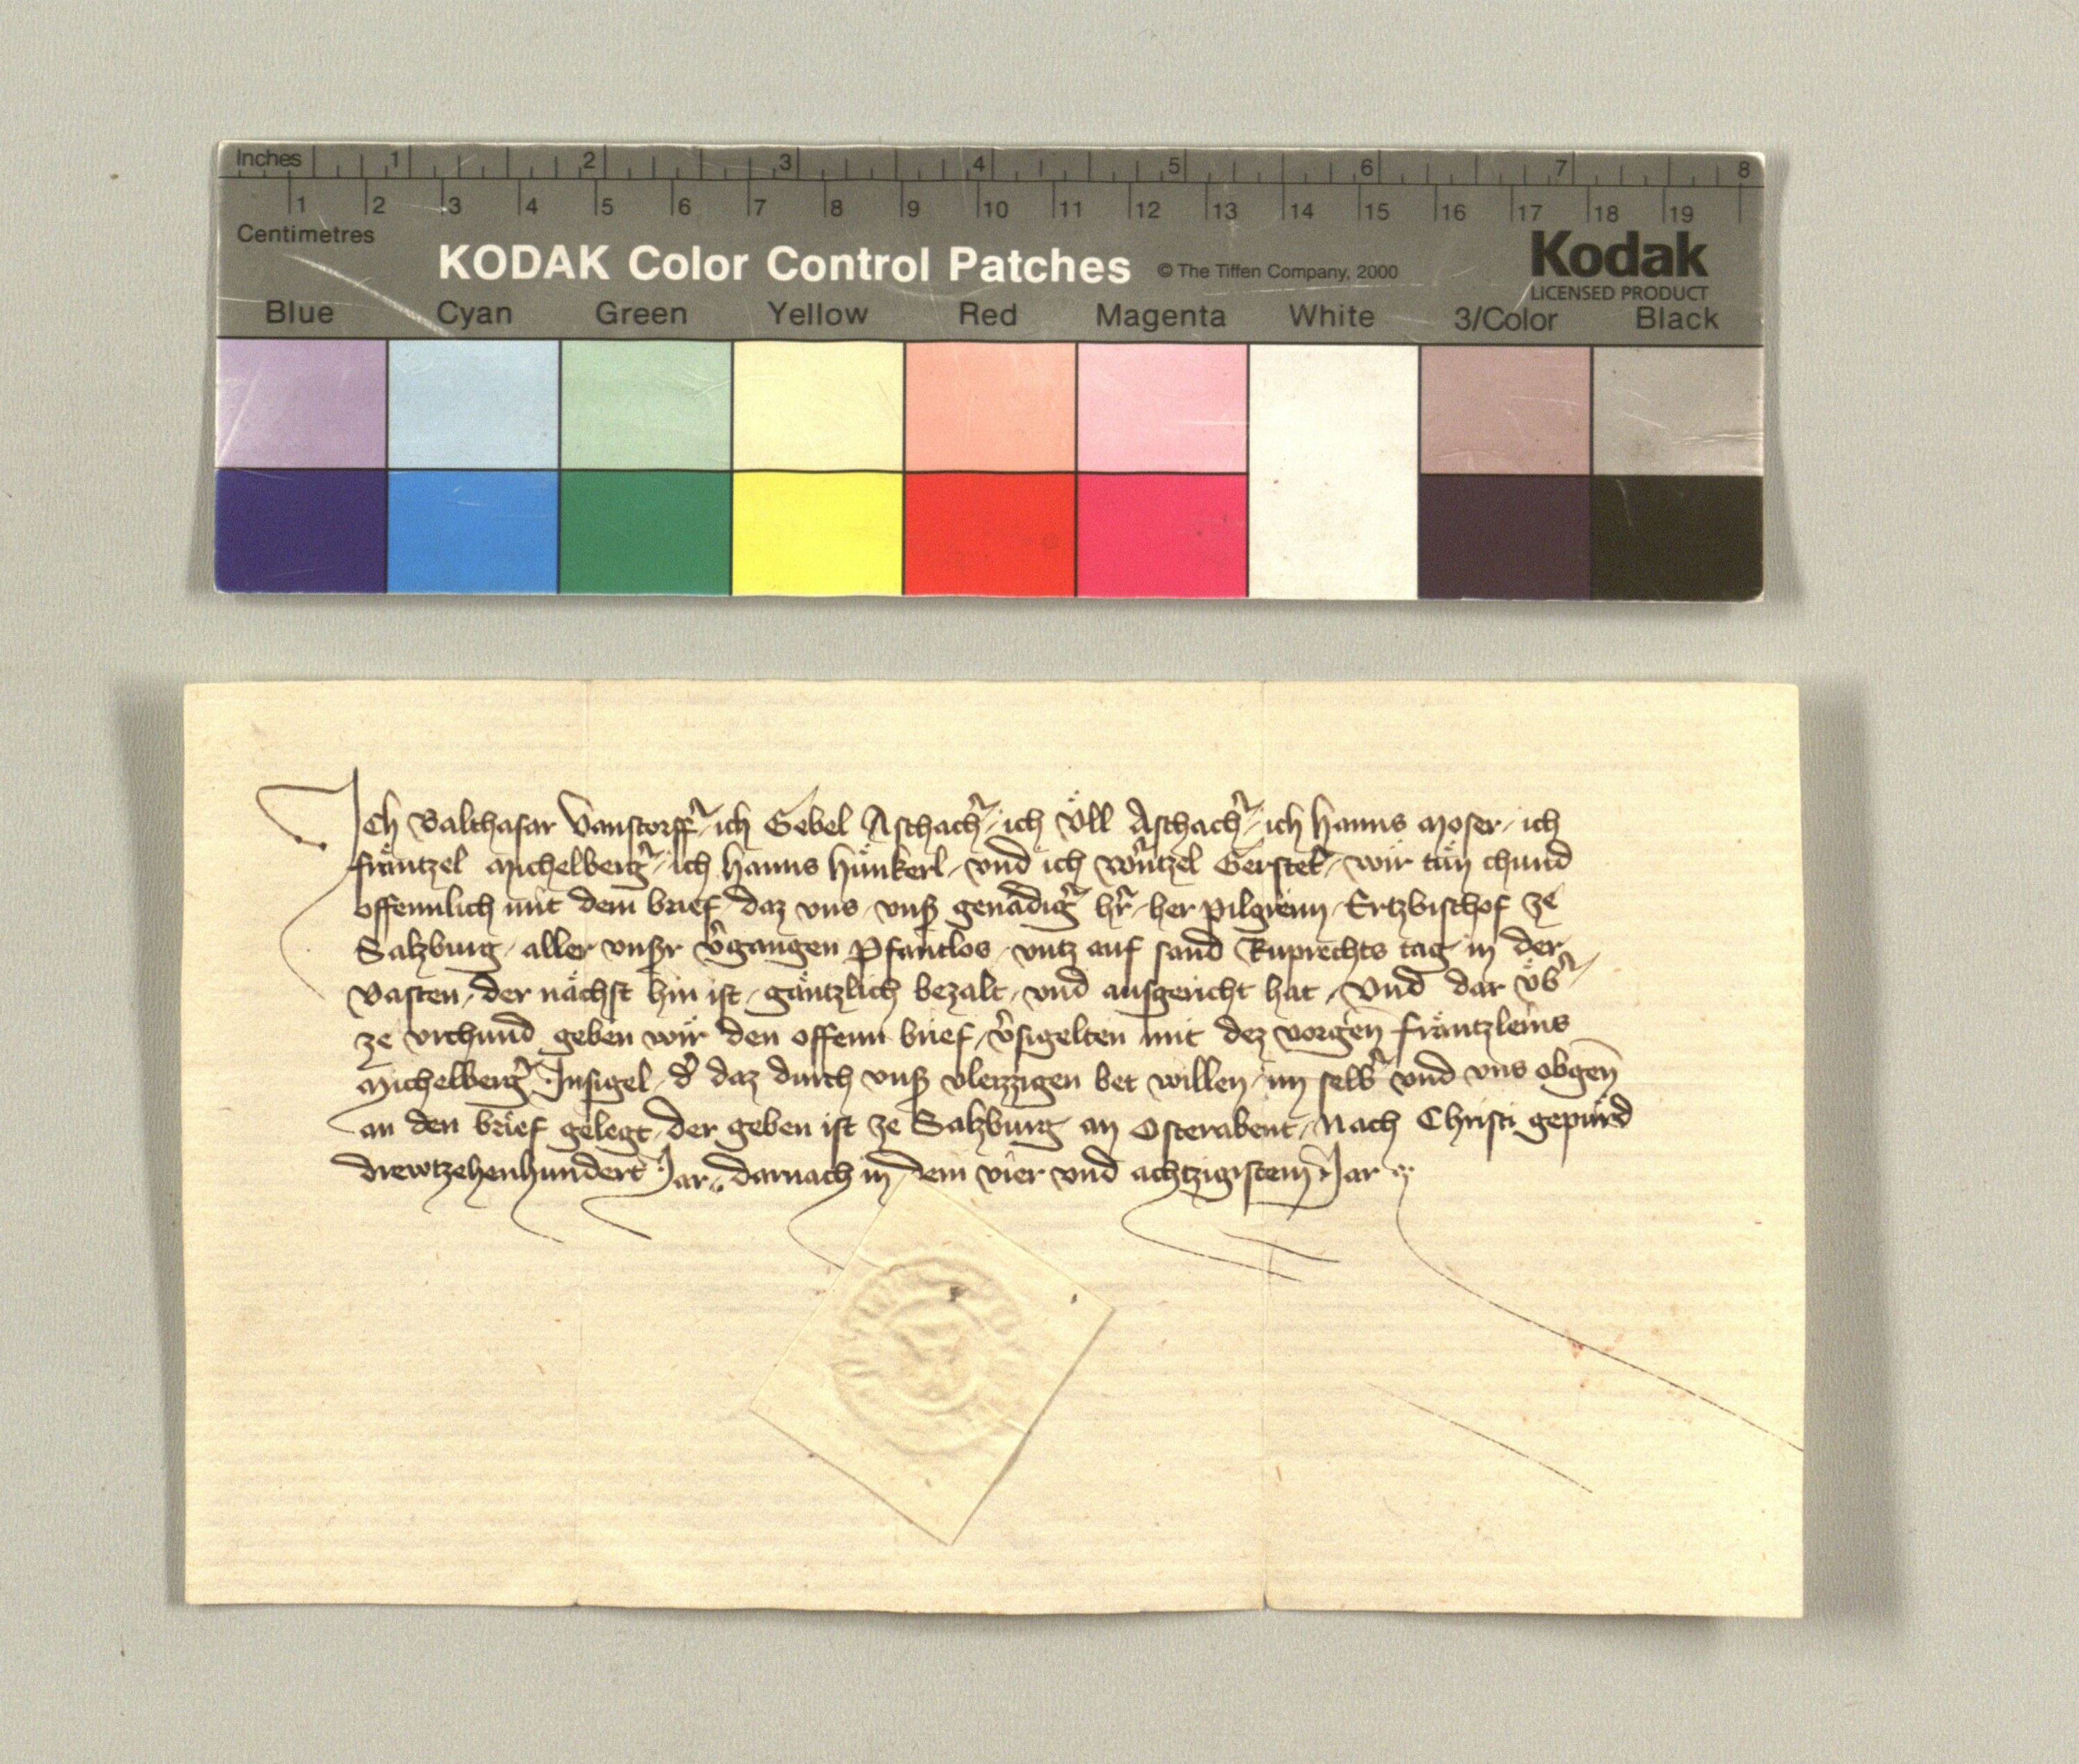 Inches 1 2 3 4 5 6 7 8
1 2 3 4 5 6 7 8 9 10 11 12 13 14 15 16 17 18 19
Centimetres
KODAK Color Control Patches © The Tiffen Company, 2000 Kodak
LICENSED PRODUCT
Blue Cyan Green Yellow Red Magenta White 3/Color Black
Ich Balthasar Vanstorff̾ / ich Gebel Aschach̾ / ich Ůll Aschach̾ / ich Hanns Moser / ich
Fräntzel Michelberg̾ / ich Hanns Hünkerl / vnd ich Wůntzel Gerstel / wir tůn chund
offennlich mit dem brief / daz vns / vnß genädig̾ hr̄ / her Pilgreim / Ertzbischof ze
Salzburg / aller vnsßr v̾gangen Pfantlos / vntz auf sand Ruprechts tag in der
Vasten / der nächst hin ist / gäntzlich bezalt / vnd ausgericht hat / Vnd dar v̈b̾
ze vrchund geben wir den offenn brief / v̾sigelten mit dez vorgen̄ Fräntzleins
Michelberg̾ Insigel / d̾ daz durch vnß vleizzigen bet willen / im selb̾ vnd vns obgen̄
an den brief gelegt / der geben ist ze Salzburg an Osterabent / Nach Christi gepurd
drewtzehenhundert Jar / darnach in dem vier vnd achtzigistem Jar